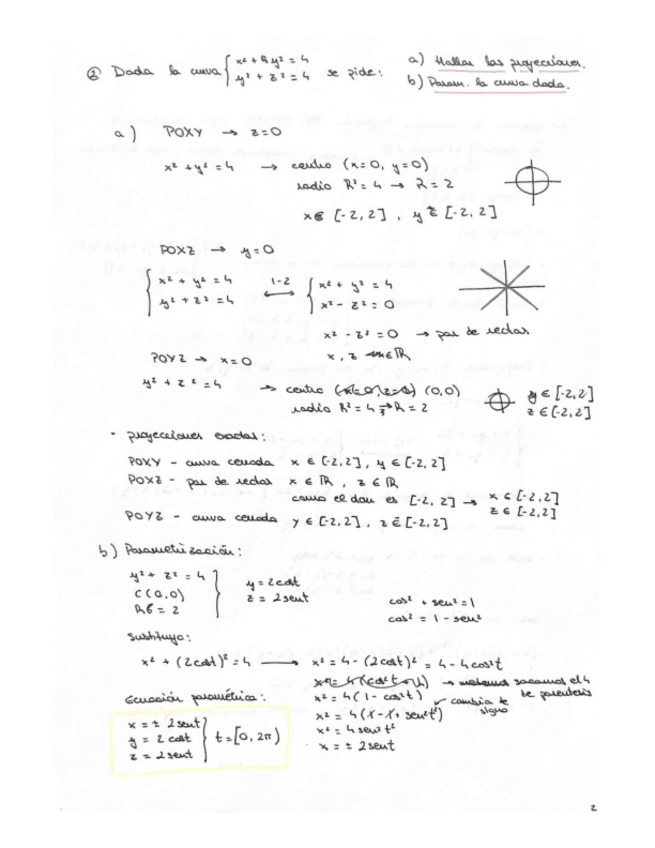 ② Dada la curva { x² + y² = 4 se pide: a) Hallar las proyecciones.
y² + z² = 4 b) Param. la curva dada.
a) POXY → z=0
x² + y² = 4 → centro (x=0, y=0)
radio R² = 4 → R = 2
x ∈ [-2,2] , y ∈ [-2,2]
POXZ → y=0
{ x² + y² = 4 1-2 { x² + y² = 4
y² + z² = 4 ⟷ x² - z² = 0
x² - z² = 0 → par de rectas
x, z ∈ ℝ
POYZ → x=0
y² + z² = 4 → centro (x=0, z=0) (0,0) y ∈ [-2,2]
radio R² = 4 → R = 2 z ∈ [-2,2]
- proyecciones exactas:
POXY - curva cerrada x ∈ [-2,2] , y ∈ [-2,2]
POXZ - par de rectas x ∈ ℝ , z ∈ ℝ
como el dom es [-2,2] → x ∈ [-2,2]
z ∈ [-2,2]
POYZ - curva cerrada y ∈ [-2,2] , z ∈ [-2,2]
b) Parametrización:
y² + z² = 4
C(0,0)
R = 2
y = 2cost
z = 2sent
cos² + sen² = 1
cos² = 1 - sen²
Sustituyo:
x² + (2cost)² = 4 → x² = 4 - (2cost)² = 4 - 4cos²t
→ sacamos el 4
de parentesis
x² = 4(1 - cos²t)
cambia de
signo
x² = 4(1 - 1 + sen²t)
x² = 4sent²
x = ± 2sent
Ecuación paramétrica:
x = ± 2sent
y = 2cost } t = [0, 2π)
z = 2sent
2